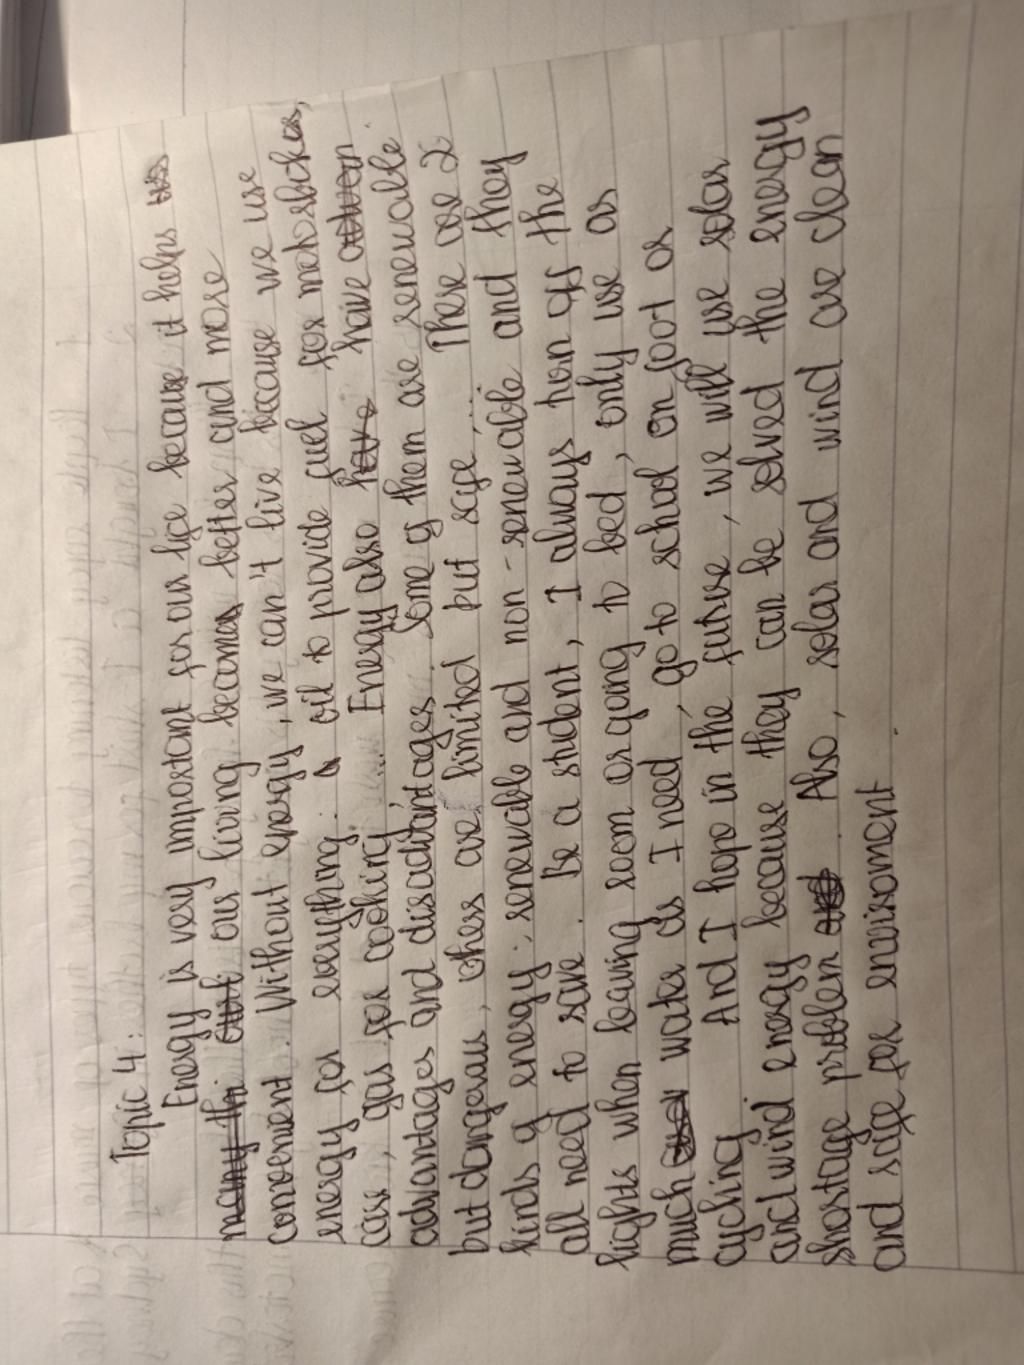 Topic 4:
Energy is very important for our life because it helps
our living becomes better and more
convenient. Without energy, we can't live because we use
energy for everything: oil to provide fuel for motorbikes,
case, gas for cooking ..... Energy also have
advantages and disadvantages. Some of them are renewable
but dangerous, others are limited but safe,... There are 2
kinds of energy: renewable and non-renewable and they
all need to save. Be a student, I always turn off the
lights when leaving room or going to bed, only use as
much water as I need, go to school on foot or
cycling. And I hope in the future, we will use solar
and wind energy because they can be solved the energy
shortage problem. Also, solar and wind are clean
and safe for environment.